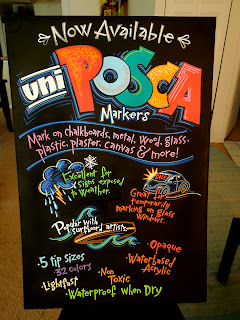 Now Available
uni POSCA
Markers
Mark on Chalkboards, metal, wood, glass,
plastic, plaster, canvas & more!
Excellent for
signs exposed
to weather.
Great for
temporarily
marking on glass
windows.
Popular with
surfboard artists.
•5 tip sizes
32 colors
•Lightfast
•Non
Toxic
•Opaque
•Waterbased
Acrylic
•Waterproof when Dry